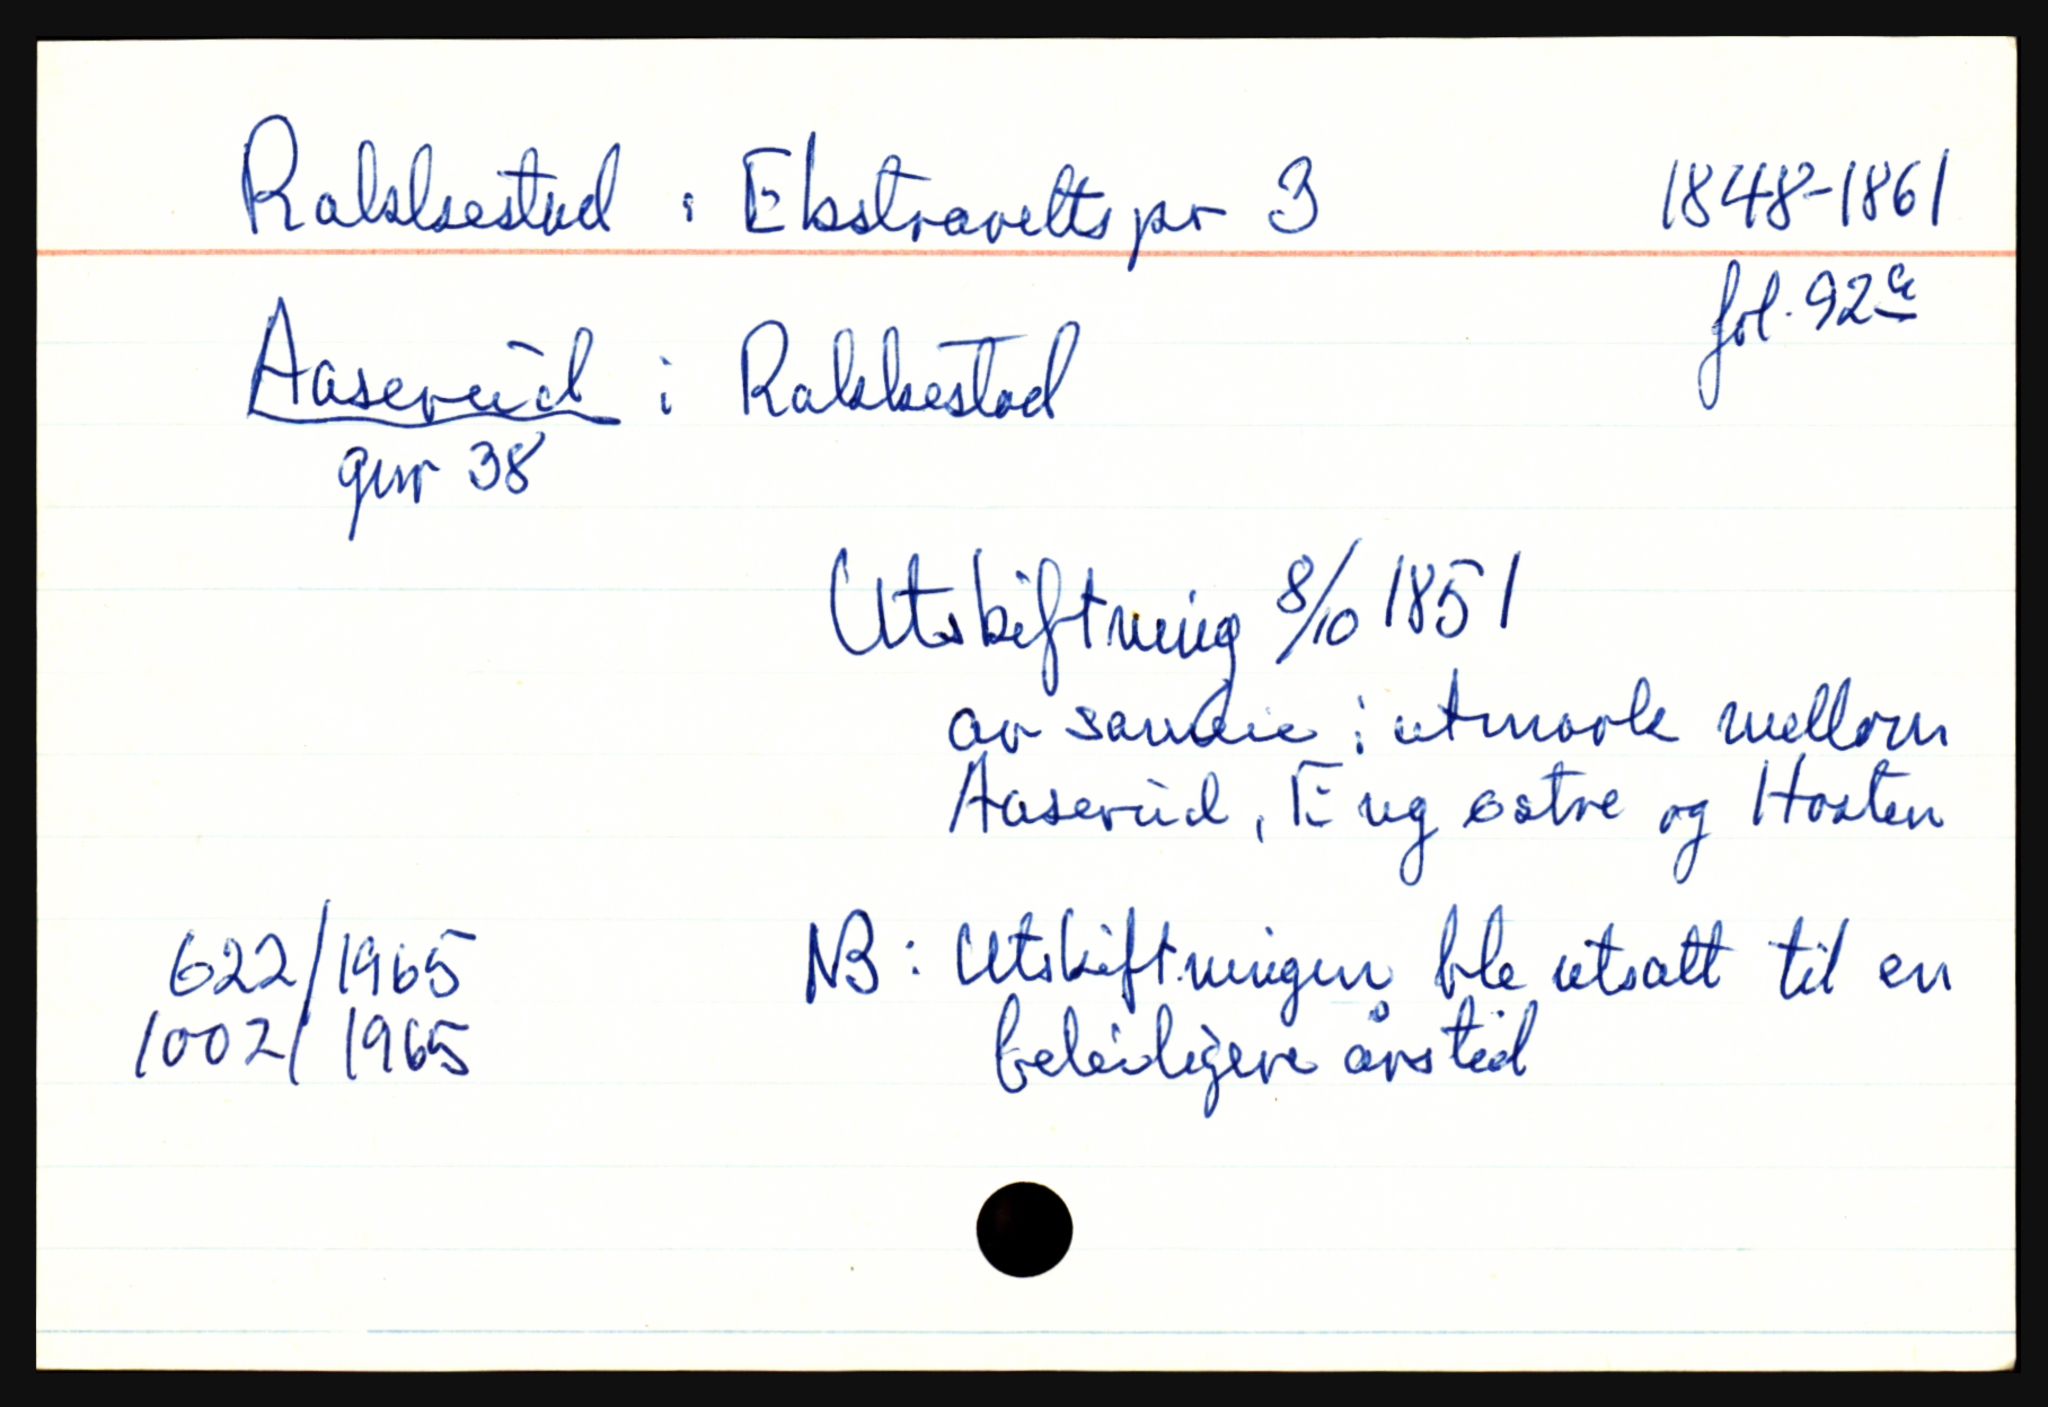 Rakkestad : Ekstrarettspr 3 1848-1861
fol. 92a
Aaserud i Rakkestad
gnr 38
Utskiftning 8/10 1851
av sameie i utmark mellom
Aaserud, Eng østre og Hosten
622/1965 NB: Utskiftningen ble utsatt til en
1002/1965 beleiligere årstid